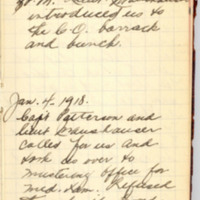 introduced us to
the C.O. barrack
and bunch.
Jan. 4-1918.
Capt Patterson and
Lieut Kramshauser
called for us and
took us over to
mustering office for
med. exam. Refused